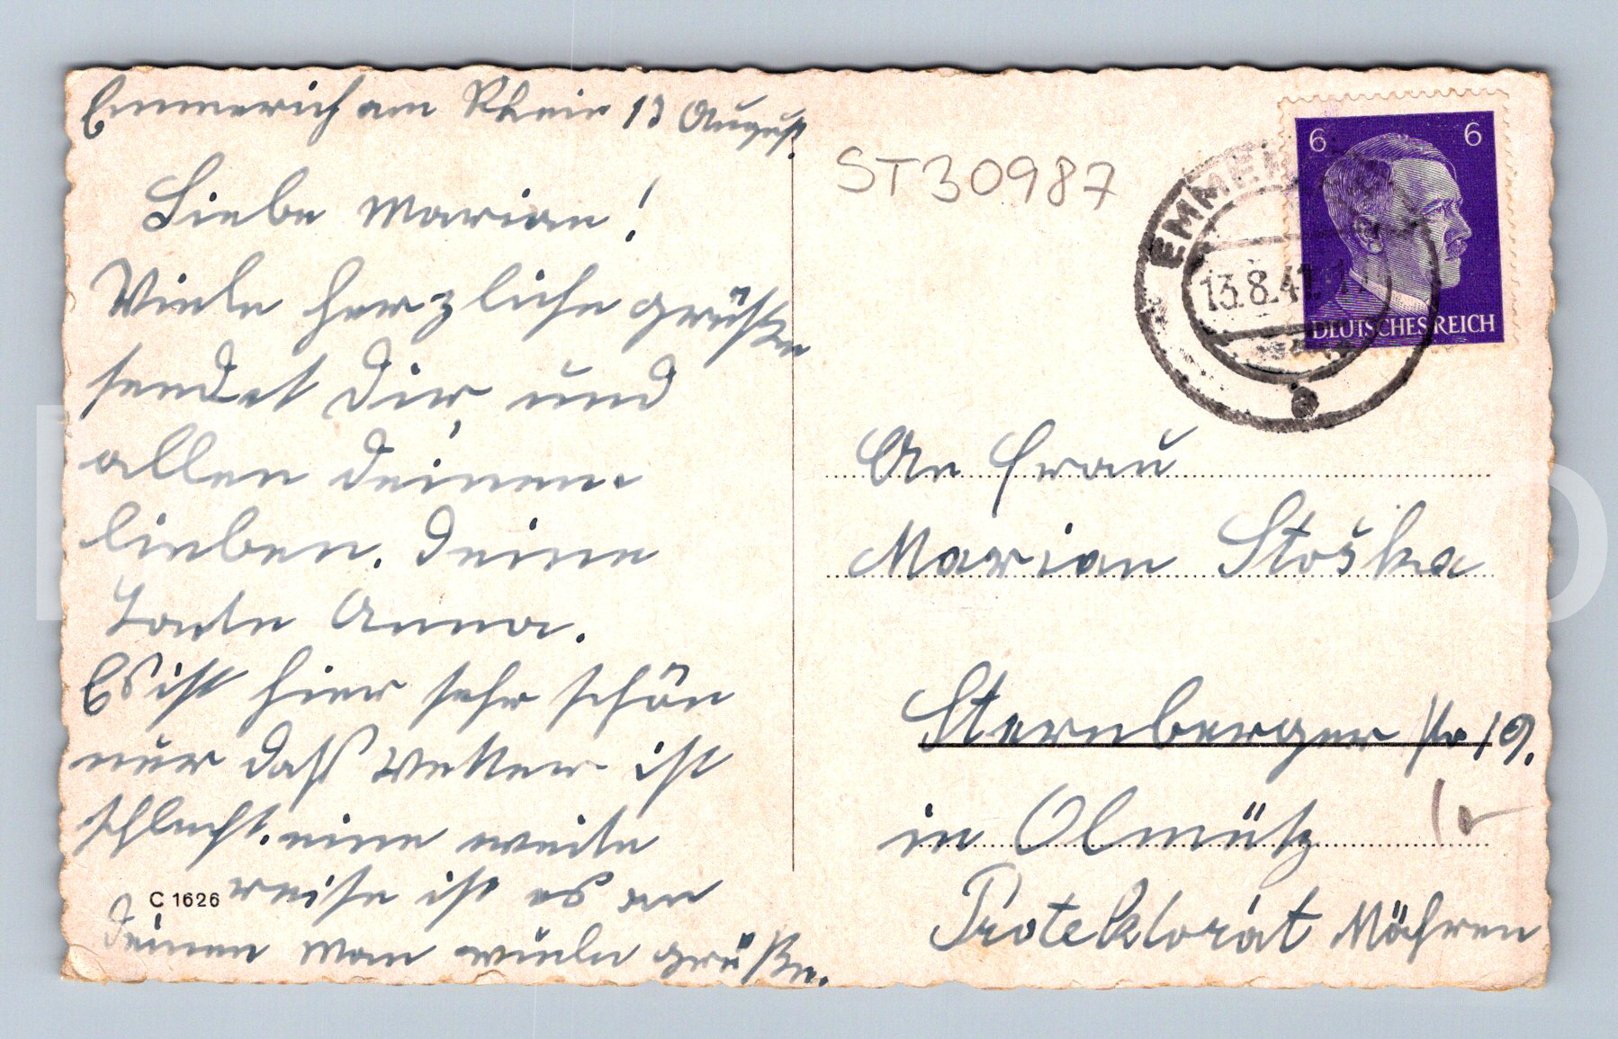 Emmerich am Rhein 13 August.
Liebe Marian!
Viele herzliche grüße
sendet Dir und
allen deinen
lieben. deine
Tante Anna.
Es ist hier sehr schön
nur daß Wetter ist
schlecht. eine weite
reise ist es an
deinen man viele grüße.
C 1626
ST30987
6 6
DEUTSCHES REICH
EMMER
13.8.41
An Frau
Marian Stoška
Sternberger str 19.
in Olmütz
Protektorat Mähren